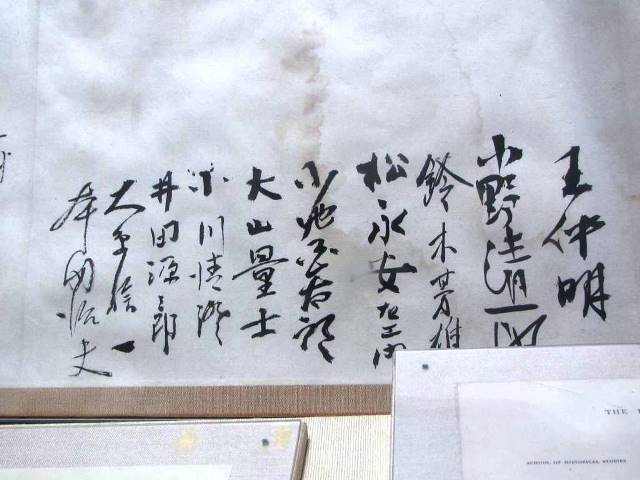 王仲明
小野清一郎
鈴木雄
松永安左エ門
小池郎
大山量士
小川
井田源三郎
大平一
夫
THE
SCHOOL OF HISTORICAL STUDIES